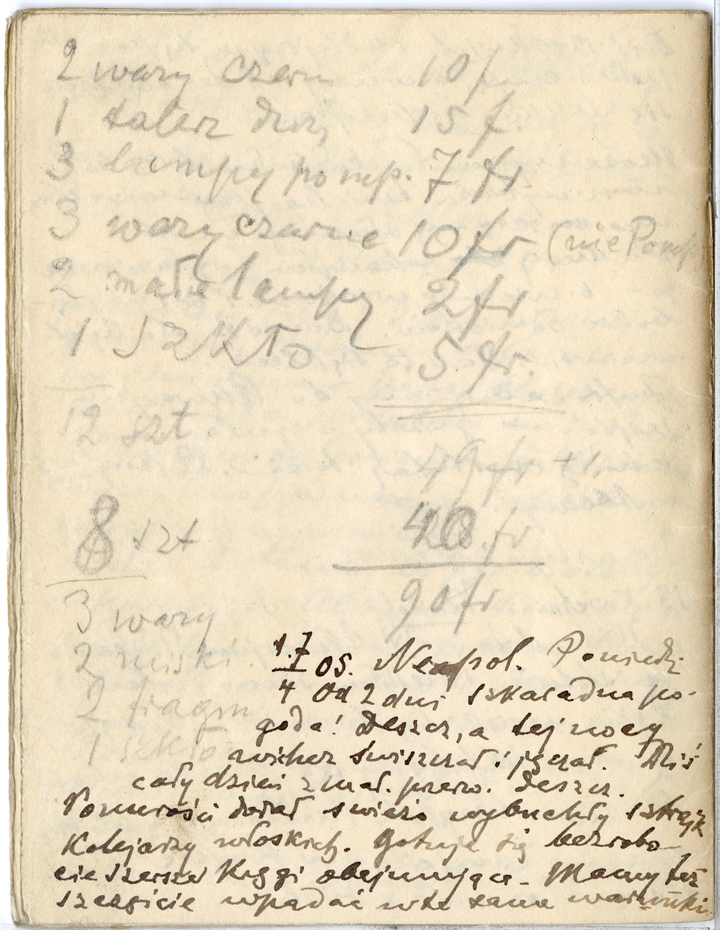 2 wazy czarn 10 f
1 talerz duży 15 f
3 lampy pomp. 7 fr
3 wazy czarne 10 fr (nie Pomp.
2 małe lampy 2 fr
1 Szkło 5 fr.
12 szt. 49 fr +
8 szt 40 fr
90 fr
3 wazy
2 miski
2 fragm
1 szkło
1.7/4 05. Neapol. Poniedz.
Od 2 dni szkaradna po-
goda! Deszcz, a tej nocy
wicher świszczał i jęczał. Dziś
cały dzień z mał. przerw. deszcz.
Ponurości dodał świeżo wybuchły strajk
Kolejarzy włoskich. Gotuje się bezrobo-
cie szersze Kręgi obejmujące. Mamy też
szczęście wpadać w te same warunki